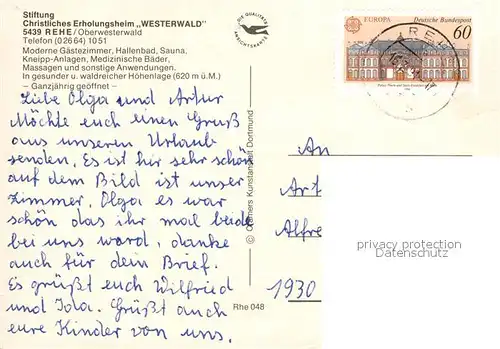 Stiftung
Christliches Erholungsheim „WESTERWALD"
5439 REHE / Oberwesterwald
Telefon (02664) 1051
Moderne Gästezimmer, Hallenbad, Sauna,
Kneipp-Anlagen, Medizinische Bäder,
Massagen und sonstige Anwendungen.
In gesunder u. waldreicher Höhenlage (620 m ü.M.)
– Ganzjährig geöffnet –
DIE QUALITÄTS
ANSICHTSKARTE
EUROPA Deutsche Bundespost
60
REHE
Liebe Olga und Artur
Möchte euch einen Gruß
aus unseren Urlaub
senden. Es ist hir sehr schön
auf dem Bild ist unser
Zimmer. Olga es war
schön das ihr mal beide
bei uns ward, danke
auch für dein Brief.
Es grüßt euch Wilfried
und Ida. Grüßt auch
eure Kinder von uns.
© Cramers Kunstanstalt Dortmund
Rhe 048
An
Art
Alfre
1930
privacy protection
Datenschutz